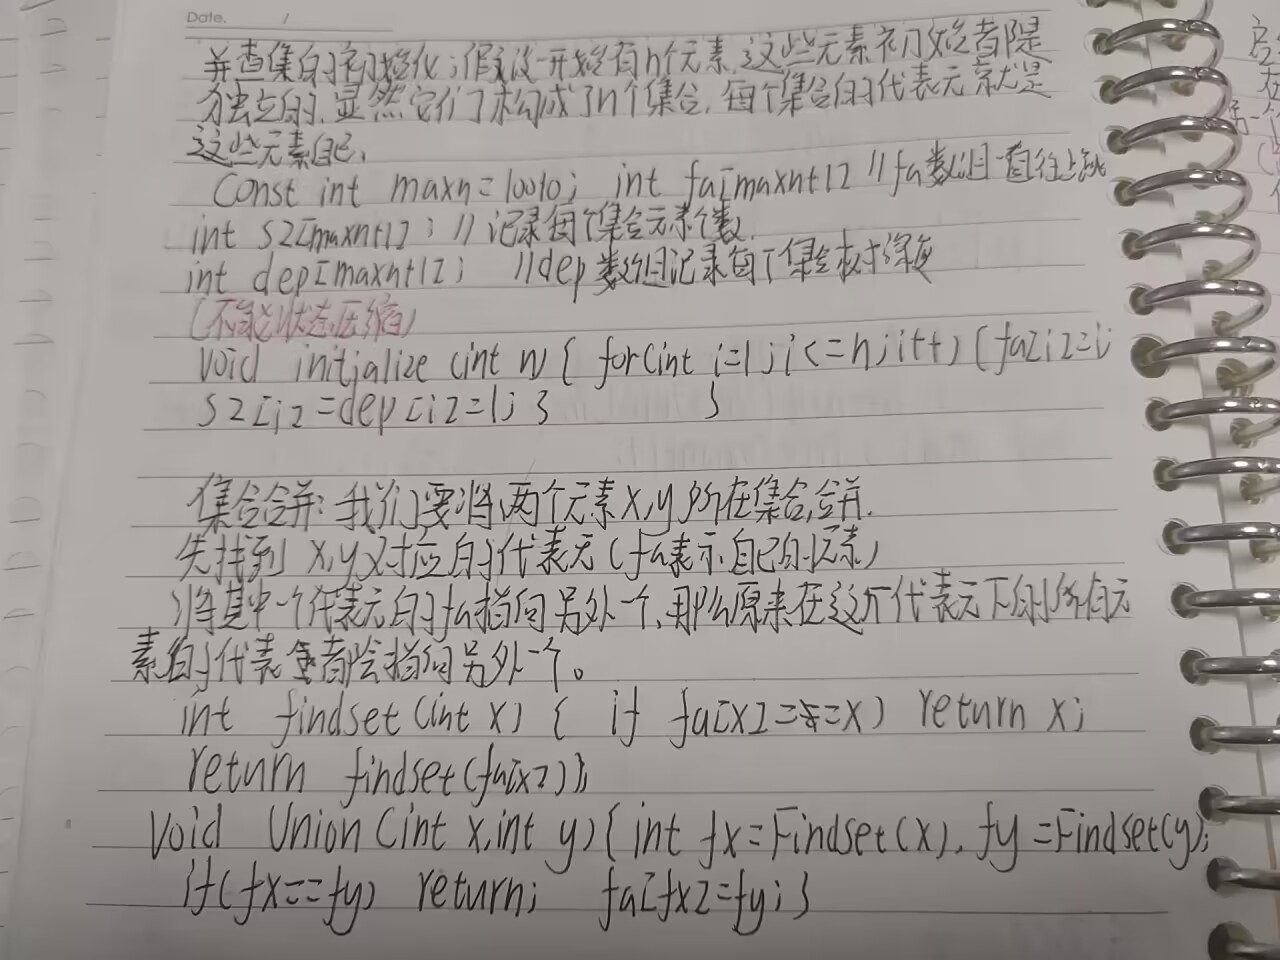 Date. /
并查集的初始化;假设一开始有n个元素,这些元素初始都是
独立的,显然它们构成了n个集合,每个集合的代表元就是
这些元素自己,
Const int maxn=10010; int fa[maxn+1] //fa数组一直往上跳
int sz[maxn+1]; //记录每个集合元素个数,
int dep[maxn+1]; //dep数组记录每个集合树深度
(不能状态压缩)
Void initialize (int n) { for(int i=1;i<=n;i++) {fa[i]=i
sz[i]=dep[i]=1; } }
集合合并:我们要将两个元素x,y所在集合合并.
先找到x,y对应的代表元(fa表示自己的元素)
将其中一个代表元的fa指向另外一个,那么原来在这个代表元下的所有元
素的代表都会指向另外一个。
int findset(int x) { if fa[x]==x) return x;
return findset(fa[x])};
Void Union(int x,int y){int fx=Findset(x), fy=Findset(y);
if(fx==fy) return; fa[fx]=fy;}